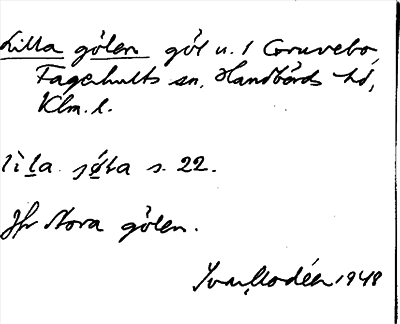 Lilla gölen göl u. f Gruvebo,
Fagerhults sn, Handbörds hd,
Klm. l.
s. 22.
Jfr Stora gölen.
Ivar Modéer 1948